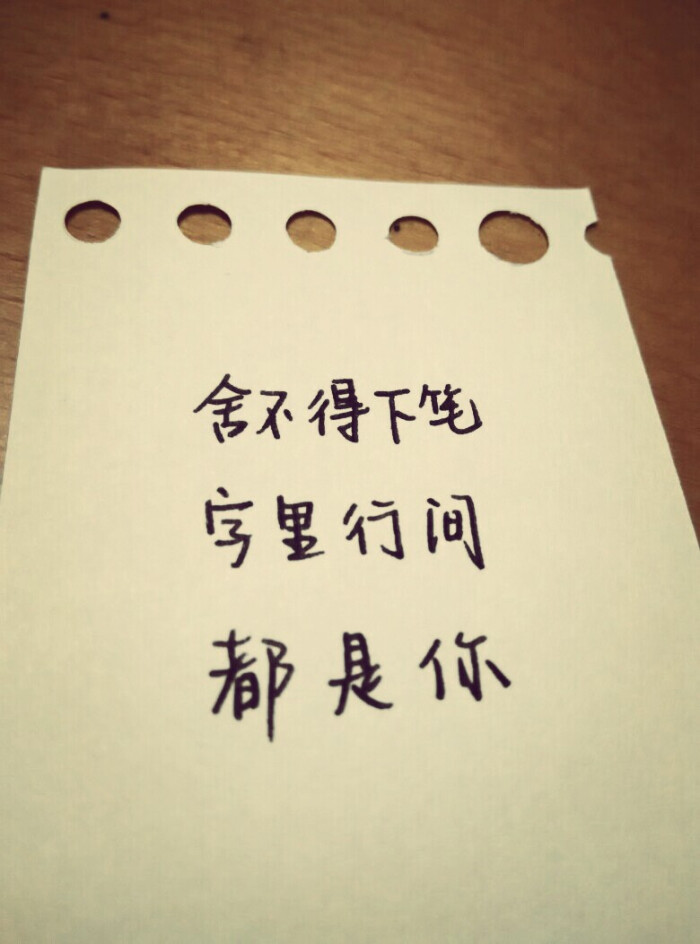 舍不得下笔
字里行间
都是你